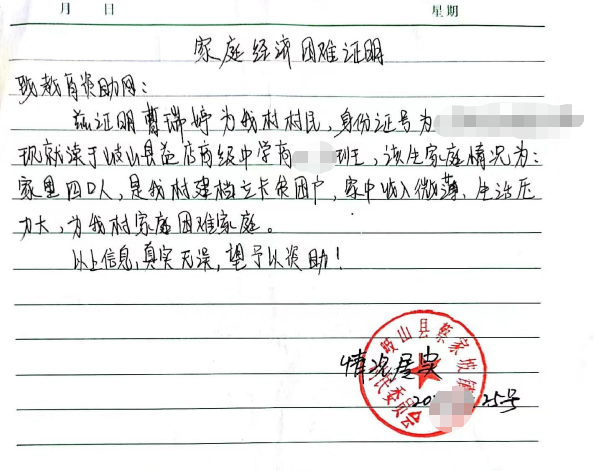 月 日 星期
家庭经济困难证明
我教育资助网:
兹证明曹瑞婷为我村村民,身份证号为
现就读于岐山县益店高级中学高 班,该生家庭情况为:
家里四口人,是我村建档立卡贫困户,家中收入微薄、生活压
力大,为我村家庭困难家庭。
以上信息,真实无误,望予以资助!
岐山县蔡家坡镇
情况属实
委员会
20 25号